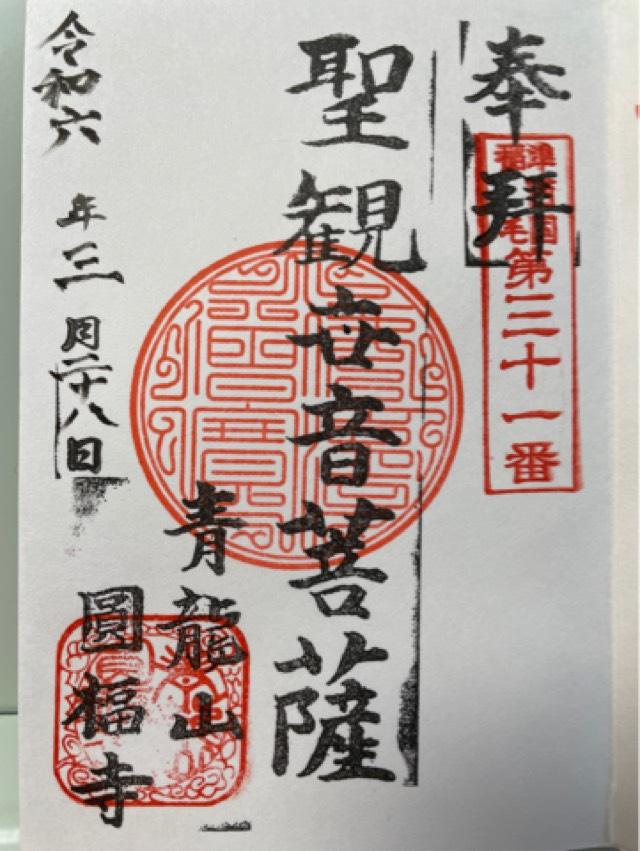 奉拝
第三十一番
聖観世音菩薩
青龍山
圓福寺
令和六年三月二十八日